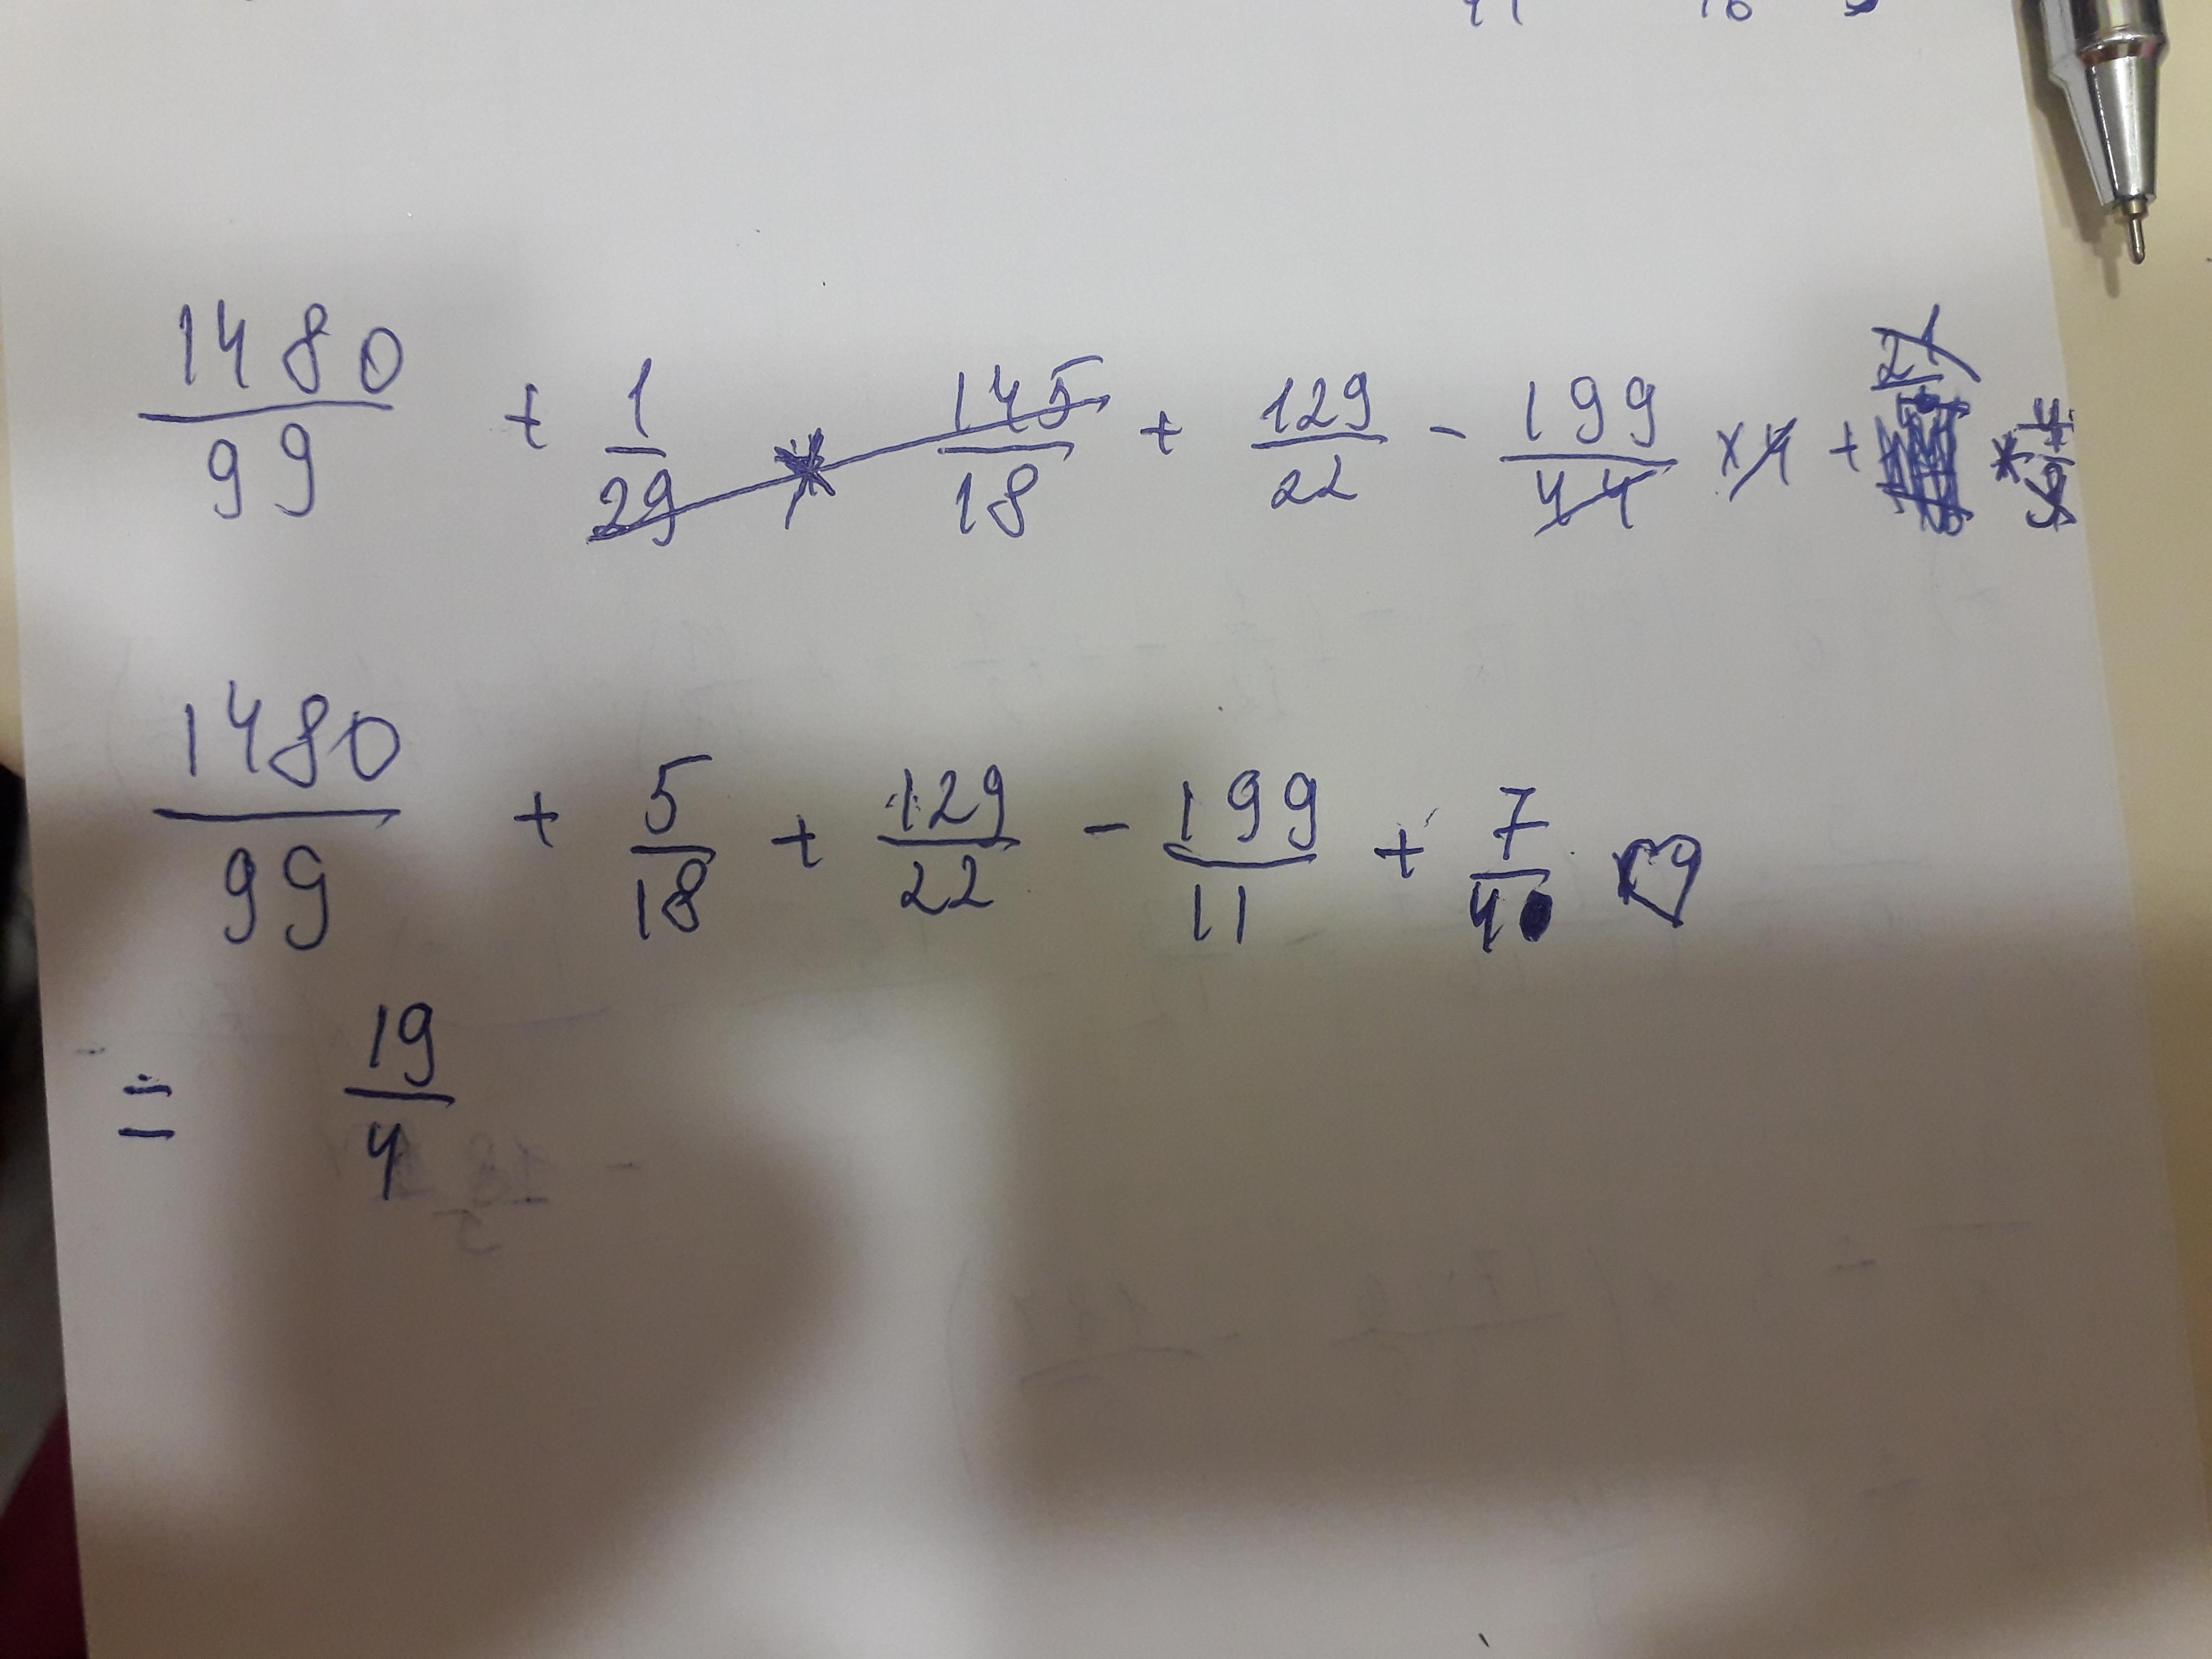 1480/99 + 1/29 * 145/18 + 129/22 - 199/44 × 4 + 21/ *
1480/99 + 5/18 + 129/22 - 199/11 + 7/4
= 19/4